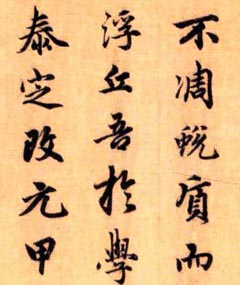 不凋蜕質而
浮丘吾於學
泰定改元甲